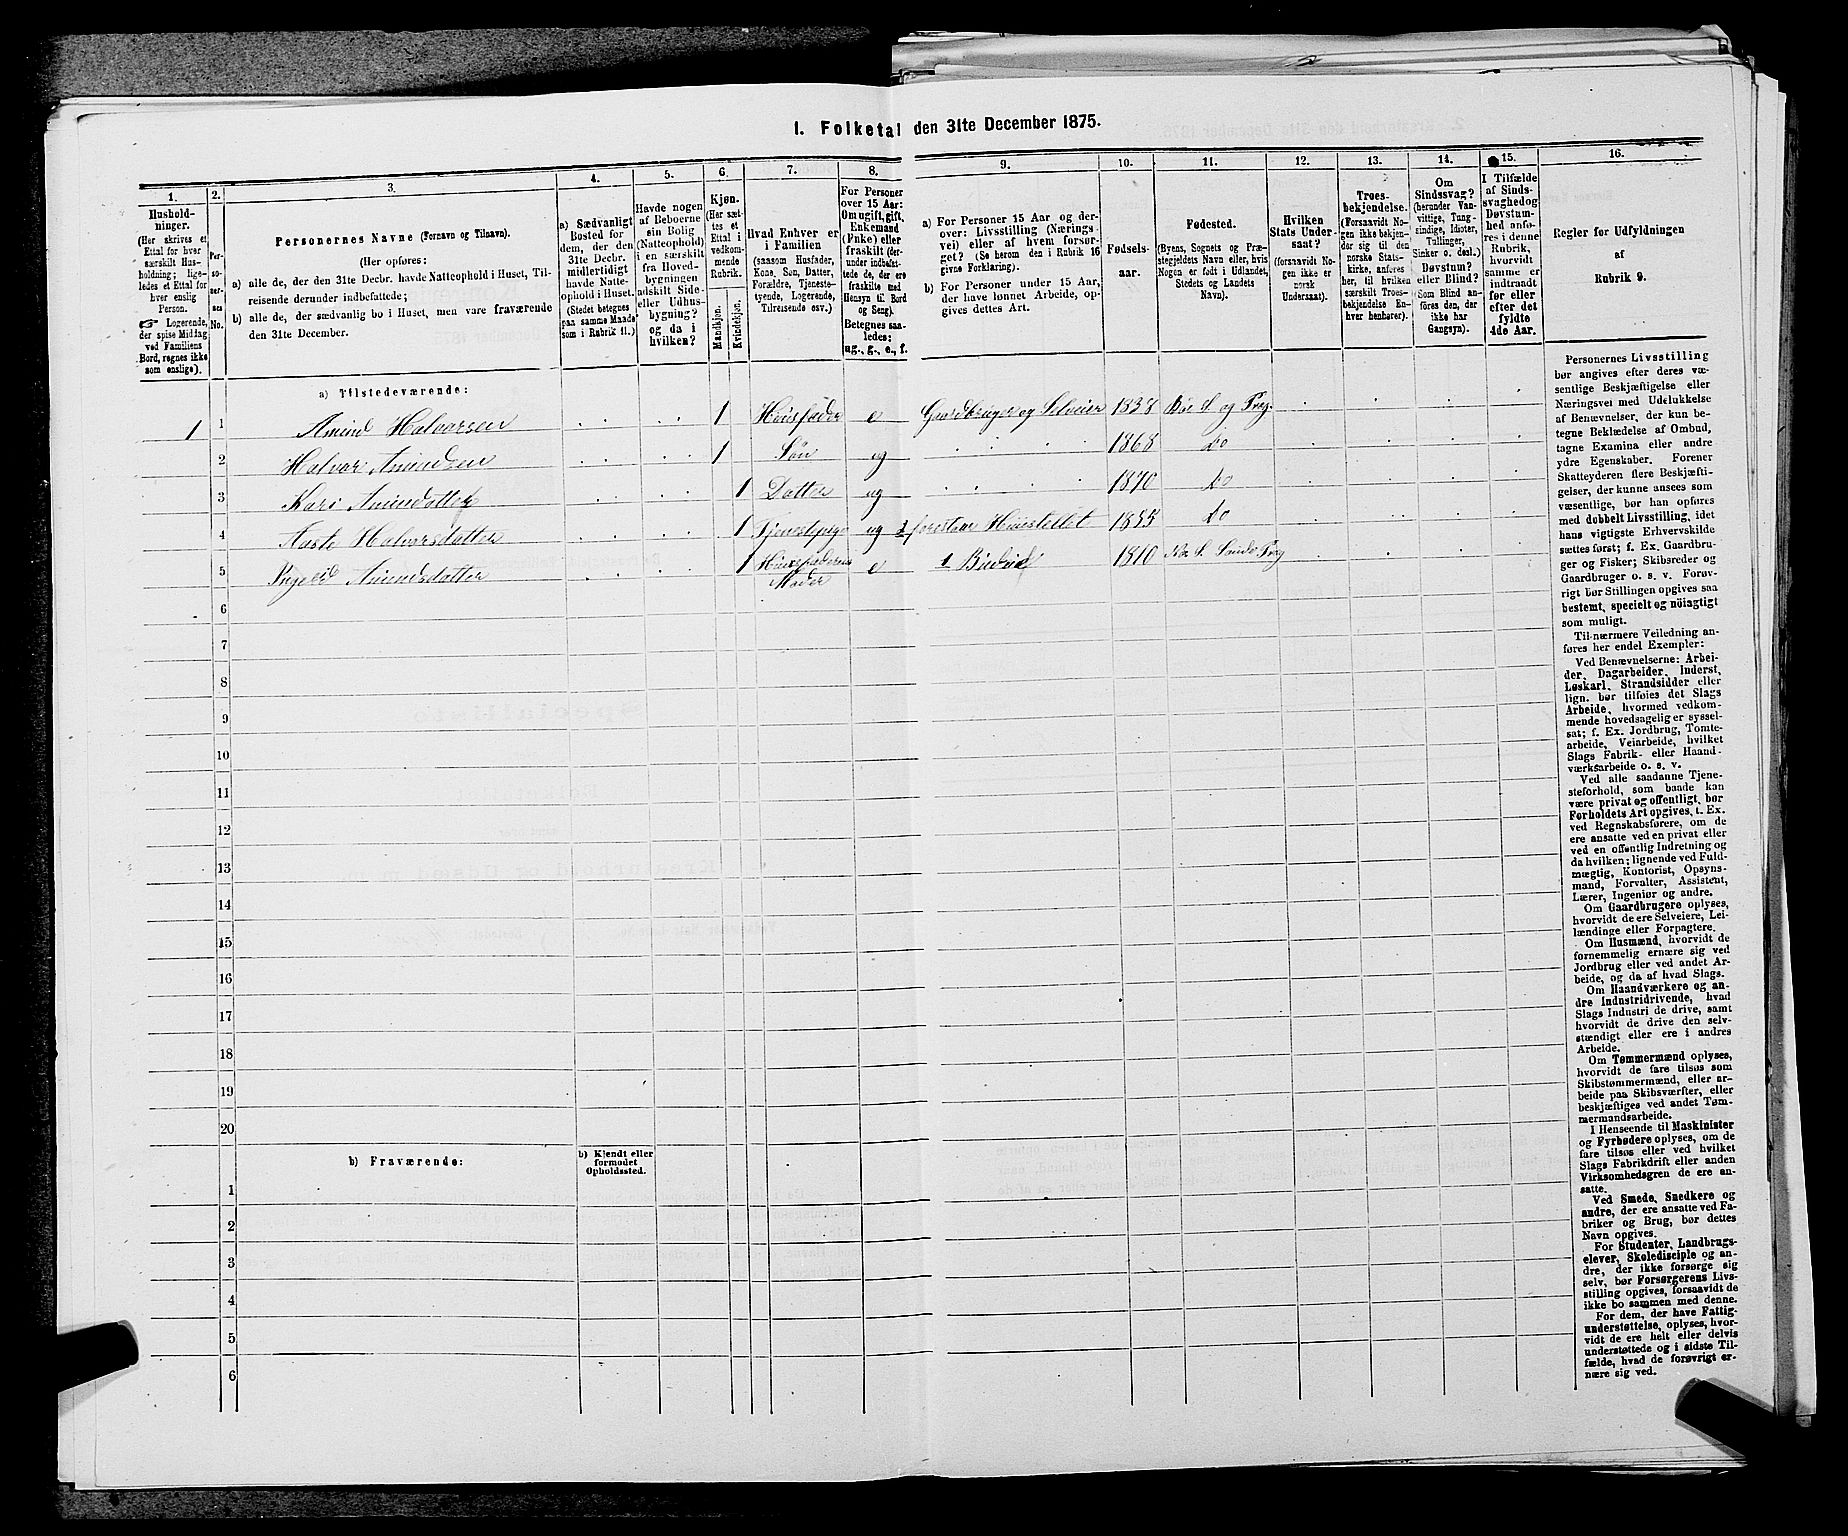 1. Folketal den 31te December 1875.
1.
2.
3.
4.
5.
6.
7.
8.
9.
10.
11.
12.
13.
14.
15.
16.
Hushold-
ninger.
(Her skrives et
Ettal for hver
særskilt Hus-
holdning; lige-
ledes et Ettal for
hver enslig
Person.
☞ Logerende,
der spise Middag
ved Familiens
Bord, regnes ikke
som enslige).
Per-
so-
ner-
nes
No.
Personernes Navne (Fornavn og Tilnavn).
(Her opføres:
a) alle de, der den 31te Decbr. havde Natteophold i Huset, Til-
reisende derunder indbefattede;
b) alle de, der sædvanlig bo i Huset, men vare fraværende
den 31te December.
a) Sædvanligt
Bosted for
dem, der den
31te Decbr.
midlertidigt
havde Natte-
ophold i Huset.
(Stedet betegnes
paa samme Maade
som i Rubrik 11.)
Havde nogen
af Beboerne
sin Bolig
(Natteophold)
i en særskilt
fra Hoved-
bygningen
adskilt Side-
eller Udhus-
bygning?
og da i
hvilken?
Kjøn.
(Her sæt-
tes et
Ettal i
vedkom-
mende
Rubrik.
Mandkjøn.
Kvindekjøn.
Hvad Enhver er
i Familien
(saasom Husfader,
Kone, Søn, Datter,
Forældre, Tjeneste-
tyende, Logerende,
Tilreisende osv.)
For Personer
over 15 Aar:
Om ugift, gift,
Enkemand
(Enke) eller
fraskilt (der-
under indbefat-
tede de, der ere
fraskilte med
Hensyn til Bord
og Seng).
Betegnes saa-
ledes:
ug., g., e., f.
a) For Personer 15 Aar og der-
over: Livsstilling (Nærings-
vei) eller af hvem forsør-
get? (Se herom den i Rubrik 16
givne Forklaring).
b) For Personer under 15 Aar,
der have lønnet Arbeide, op-
gives dettes Art.
Fødsels-
aar.
Fødested.
(Byens, Sognets og Præ-
stegjeldets Navn eller, hvis
Nogen er født i Udlandet,
Stedets og Landets
Navn).
Hvilken
Stats Under-
saat?
(forsaavidt No-
gen ikke er
norsk
Undersaat).
Troes-
bekjendelse.
(Forsaavidt No-
gen ikke bekjen-
der sig til den
norske Stats-
kirke, anføres
her, til hvilken
særskilt Troes-
bekjendelse En-
hver henhører).
Om
Sindssvag?
(herunder Van-
vittige, Tung-
sindige, Idioter,
Tullinger,
Sinker o. desl.)
Døvstum?
eller Blind?
(Som Blind an-
føres den, der
ikke har
Gangsyn).
I Tilfælde
af Sinds-
svaghed og
Døvstum-
hed anfø-
res i denne
Rubrik,
hvorvidt
samme er
indtraadt
før eller
efter det
fyldte
4de Aar.
Regler for Udfyldningen
af
Rubrik 9.
a) Tilstedeværende:
1 1 Amund Halvorsen 1 Huusfader e Gaardbruger og Selveier 1838 Bøe S. og Prg.
2 Halvor Amundsen 1 Søn ug 1868 Do
3 Kari Amundsdatter 1 Datter ug 1870 Do
4 Aaste Halvorsdatter 1 Tjenestepige ug forestaar Huusstellet 1855 Do
5 Amundsdatter 1 Huusfaderens Moder e 1810
6
7
8
9
10
11
12
13
14
15
16
17
18
19
20
b) Fraværende:
b) Kjendt eller
formodet
Opholdssted.
1
2
3
4
5
6
Personernes Livsstilling
bør angives efter deres væ-
sentlige Beskjæftigelse eller
Næringsvei med Udelukkelse
af Benævnelser, der kun be-
tegne Beklædelse af Ombud,
tagne Examina eller andre
ydre Egenskaber. Forener
Skatteyderen flere Beskjæfti-
gelser, der kunne ansees som
væsentlige, bør han opføres
med dobbelt Livsstilling, idet
hans vigtigste Erhvervskilde
sættes først; f. Ex. Gaardbru-
ger og Fisker; Skibsreder og
Gaardbruger o. s. v. Forøv-
rigt bør Stillingen opgives saa
bestemt, specielt og nøiagtigt
som muligt.
Til nærmere Veiledning an-
føres her endel Exempler:
Ved Benævnelserne: Arbei-
der, Dagarbeider, Inderst,
Løskarl, Strandsidder eller
lign. bør tilføies det Slags
Arbeide, hvormed vedkom-
mende hovedsagelig er syssel-
sat; f. Ex. Jordbrug, Tomte-
arbeide, Veiarbeide, hvilket
Slags Fabrik- eller Haand-
værksarbeide o. s. v.
Ved alle saadanne Tjene-
steforhold, som baade kan
være privat og offentligt, bør
Forholdets Art opgives, t. Ex.
ved Regnskabsførere, om de
ere ansatte ved en privat eller
ved en offentlig Indretning og
da hvilken; lignende ved Fuld-
mægtig, Kontorist, Opsyns-
mand, Forvalter, Assistent,
Lærer, Ingeniør og andre.
Om Gaardbrugere oplyses,
hvorvidt de ere Selveiere, Lei-
lændinge eller Forpagtere.
Om Husmænd, hvorvidt de
fornemmelig ernære sig ved
Jordbrug eller ved andet Ar-
beide, og da af hvad Slags.
Om Haandværkere og an-
dre Industridrivende, hvad
Slags Industri de drive, samt
hvorvidt de drive den selv-
stændigt eller ere i andres
Arbeide.
Om Tømmermænd oplyses,
hvorvidt de fare tilsøs som
Skibstømmermænd, eller ar-
beide paa Skibsværfter, eller
beskjæftiges ved andet Tøm-
mermandsarbeide.
I Henseende til Maskinister
og Fyrbødere oplyses, om de
fare tilsøs eller ved hvilket
Slags Fabrikdrift eller anden
Virksomhedsgren de ere an-
satte.
Ved Smede, Snedkere og
andre, der ere ansatte ved Fa-
briker og Brug, bør dettes
Navn opgives.
For Studenter, Landbrugs-
elever, Skoledisciple og an-
dre, der ikke forsørge sig
selv, bør Forsørgerens Livs-
stilling opgives, forsaavidt de
ikke bo sammen med denne.
For dem, der have Fattig-
understøttelse, oplyses, hvor-
vidt de ere helt eller delvis
understøttede og i sidste Til-
fælde, hvad de forøvrigt er-
nære sig ved.